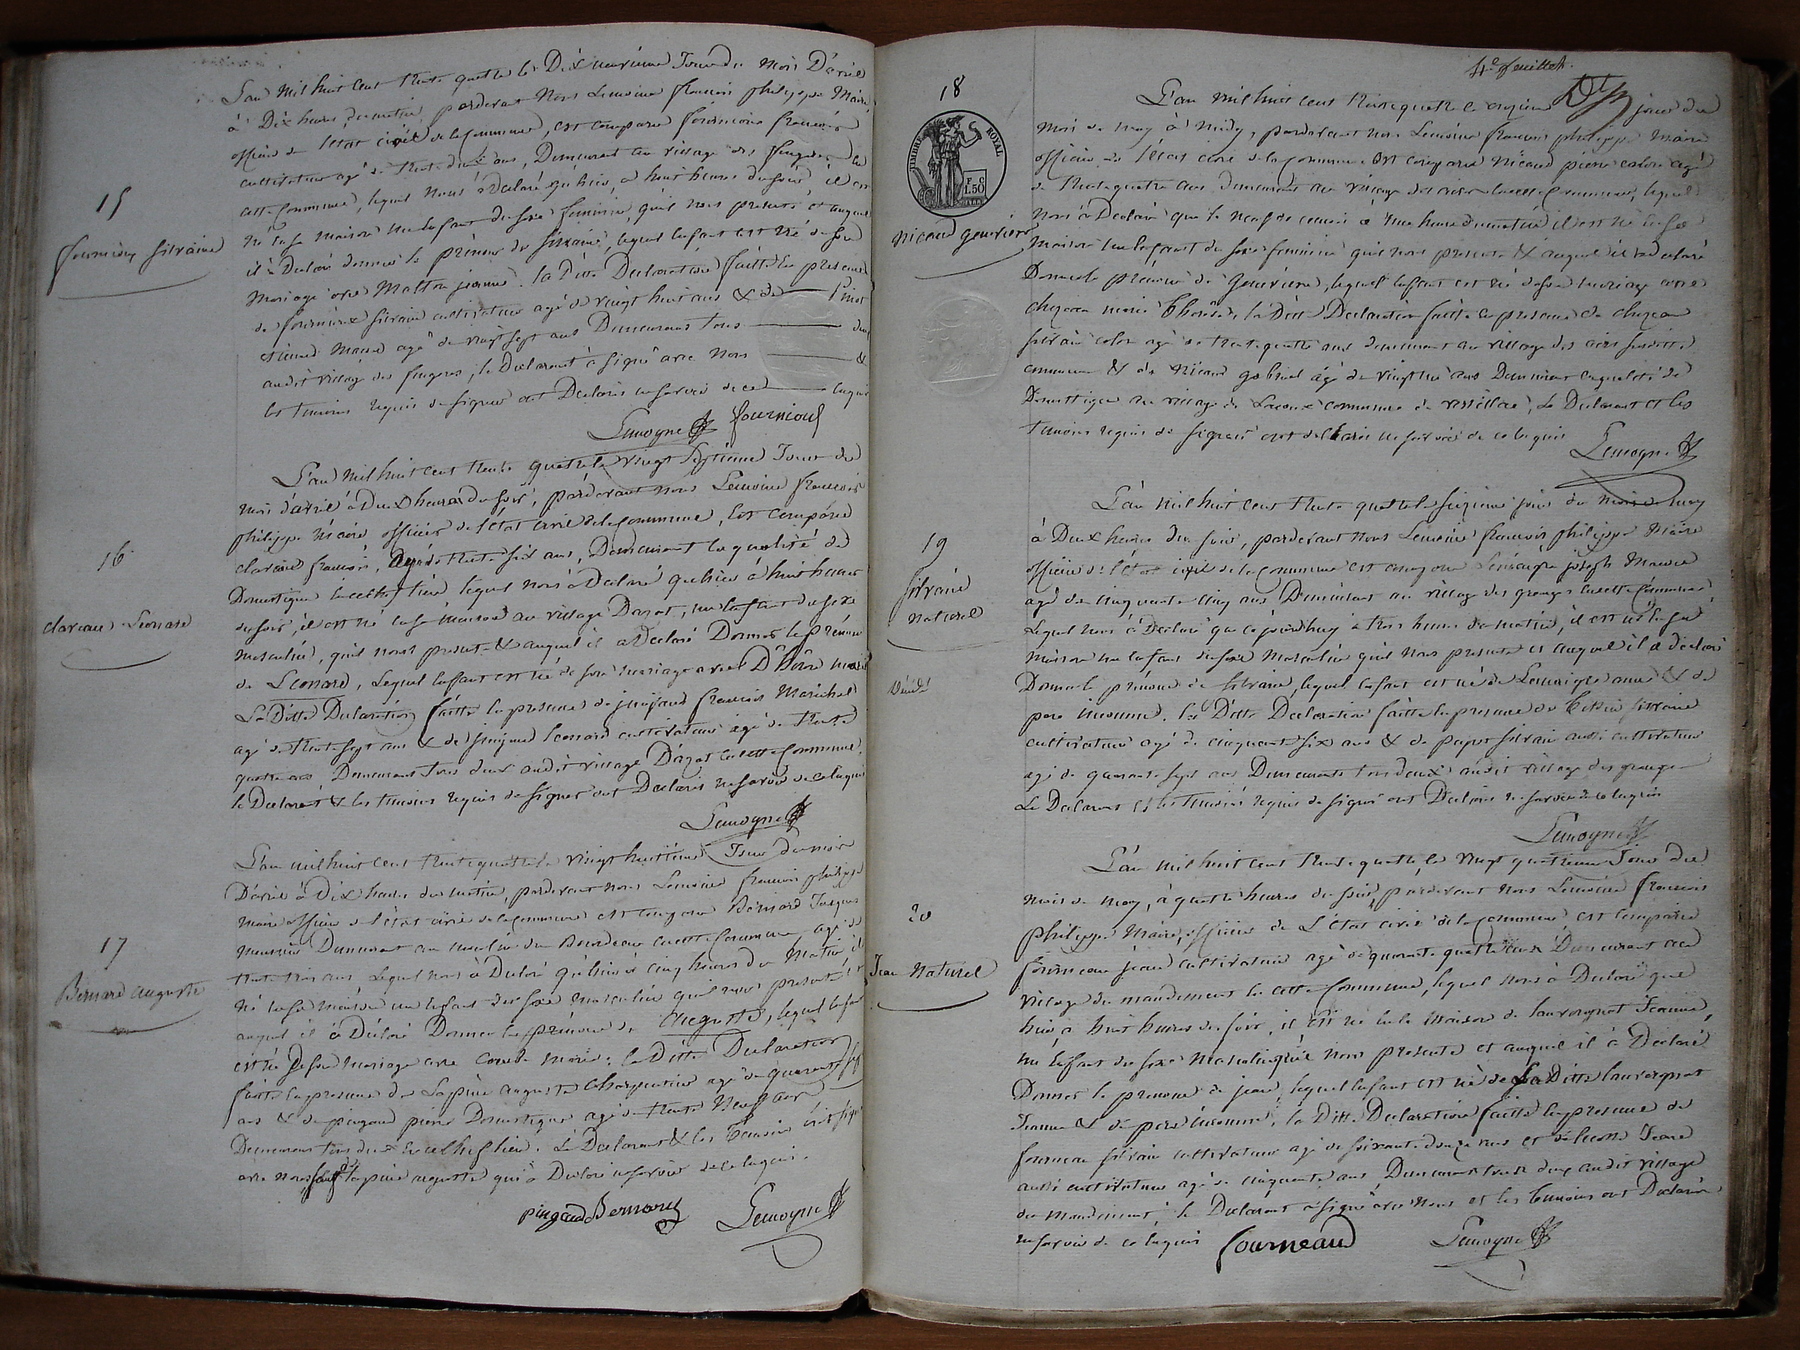 15
fournioux silvaine
L'an mil huit cent trente quatre le Dix neuvième Jour du mois D'avril
à Dix heures du matin, pardevant Nous Lemoine françois philippe Maire
officier de l'état civil de la Commune, est comparu fournioux françois
cultivateur agé de trente deux ans, Demeurant au village des fougeres en
cette Commune, lequel nous à Declaré qu'hier, à huit heures du soir, il est
né en sa maison un enfant du sexe feminin, qu'il nous presente et auquel
il à Declaré donner le prénom de silvaine, lequel enfant est né de son
mariage avec Malton jeanne. la Ditte Declaration faitte en presence
de fournioux silvain cultivateur agé de vingt huit ans & de Pinot
etienne agé de vingt sept ans Demeurans tous deux
audit village des fougeres, le Declarant à signé avec Nous &
les temoins requis de signer ont Declaré ne savoir de ce enquis
Lemoyne fournioux
16
clavaud Léonard
L'an mil huit cent trente quatre le vingt septième Jour du
mois d'avril à Deux heures du soir, pardevant nous Lemoine françois
philippe Maire officier de l'état civil de la Commune, Est comparu
clavaud françois, agé de trente six ans, Demeurant en qualité de
Domestique lequel nous à Declaré qu'hier à huit heures
du soir, il est né en sa maison au village Dazat, un enfant du sexe
masculin, qu'il nous presente & auquel il a Declaré Donner le prénom
de Léonard, Lequel enfant est né de son mariage avec
La Ditte Declaration faitte en presence de françois Maréchal
agé de trente sept ans & de Léonard cultivateur agé de trente
quatre ans Demeurans tous deux audit village Dazat en cette Commune
le Declarant & les temoins requis de signer ont Declaré ne savoir de ce enquis
Lemoyne
17
Bernard auguste
L'an mil huit cent trente quatre le vingt huitième Jour du mois
D'avril à Dix heures du matin, pardevant nous Lemoine françois philippe
maire officier de l'état civil de la Commune est comparu Bernard Jacques
meunier Demeurant au moulin du Bourdeau en cette Commune, agé de
trente trois ans Lequel nous à Declaré qu'hier à cinq heures du matin il est
né en sa maison un enfant du sexe masculin qu'il nous presente et
auquel il à Déclaré Donner le prénom de Auguste, lequel enfant
est né de son mariage avec marie: la Ditte Declaration
faitte en presence de Lapine auguste Charpentier agé de quarante
ans & de pingaud pierre Domestique agé de trente Neuf ans
Demeurans tous deux au cheflieu. Le Declarant & les Temoins ont signé
avec nous sauf Lapine auguste qui à Declaré ne savoir de ce enquis.
pingaud Bernard Lemoyne
4e feuillet
18
TIMBRE ROYAL
F. C.
1.50
nicaud genevieve
L'an mil huit cent trente quatre le onzieme jour du
mois de may à midy, pardevant nous Lemoine françois philippe Maire
officier de l'état civil de la commune est comparu Nicaud pierre colon agé
de trente quatre ans demeurant au village des en cette Commune, lequel
nous à Declaré que le neuf de ce mois à une heure du matin il est né en sa
maison un enfant du sexe feminin qu'il nous presente & auquel il à declaré
Donner le prénom de genevieve, lequel enfant est né de son mariage avec
marie Therese, la Ditte Declaration faitte en presence de
silvain colon agé de trente quatre ans demeurant au village des susditte
commune & de Nicaud gabriel agé de vingt ans Demeurant en qualité de
Domestique au village de Lacoux commune de Le Declarant et les
temoins requis de signer ont declaré ne savoir de ce enquis
Lemoyne
19
silvaine
naturel
L'an mil huit cent trente quatre le seizieme jour du mois de may
à Deux heures du soir, pardevant nous Lemoine françois philippe Maire
officier de l'état civil de la Commune est comparu joseph
agé de cinquante cinq ans, Demeurant au village des granges en cette Commune,
Lequel nous à Declaré que ce jourd'huy à trois heures du matin, il est né en sa
maison un enfant du sexe Masculin qu'il nous presente et auquel il à declaré
Donner le prénom de silvain, lequel enfant est né de anne & de
pere inconnu. la Ditte Declaration faitte en presence de silvain
cultivateur agé de cinquante six ans & de silvain aussi cultivateur
agé de quarante sept ans Demeurants tous deux audit village des granges
Le Declarant et les temoins requis de signer ont Declaré ne savoir de ce enquis
Lemoyne
20
Jean Naturel
L'an mil huit cent trente quatre, le vingt quatrieme Jour du
mois de may, à quatre heures du soir pardevant nous Lemoine françois
philippe Maire, officier de L'état civil de la Commune est comparu
fourneau jean cultivateur agé de quarante quatre ans Demeurant au
village du mandement en cette Commune, lequel nous à Declaré que
hier à huit heures du soir, il est né en la Maison de Lauvergnat Jeanne,
un Enfant du sexe Masculin qu'il nous presente et auquel il à Declaré
Donner le prenom de jean, lequel enfant est né de La Ditte Lauvergnat
Jeanne & de pere inconnu, la Ditte Declaration faitte en presence de
fourneau silvain cultivateur agé de soixante douze ans et de Jean
aussi cultivateur agé de cinquante ans, Demeurant tous deux audit village
du mandement, le Declarant à signé avec nous et les temoins ont Declaré
ne savoir de ce enquis fourneaud Lemoyne